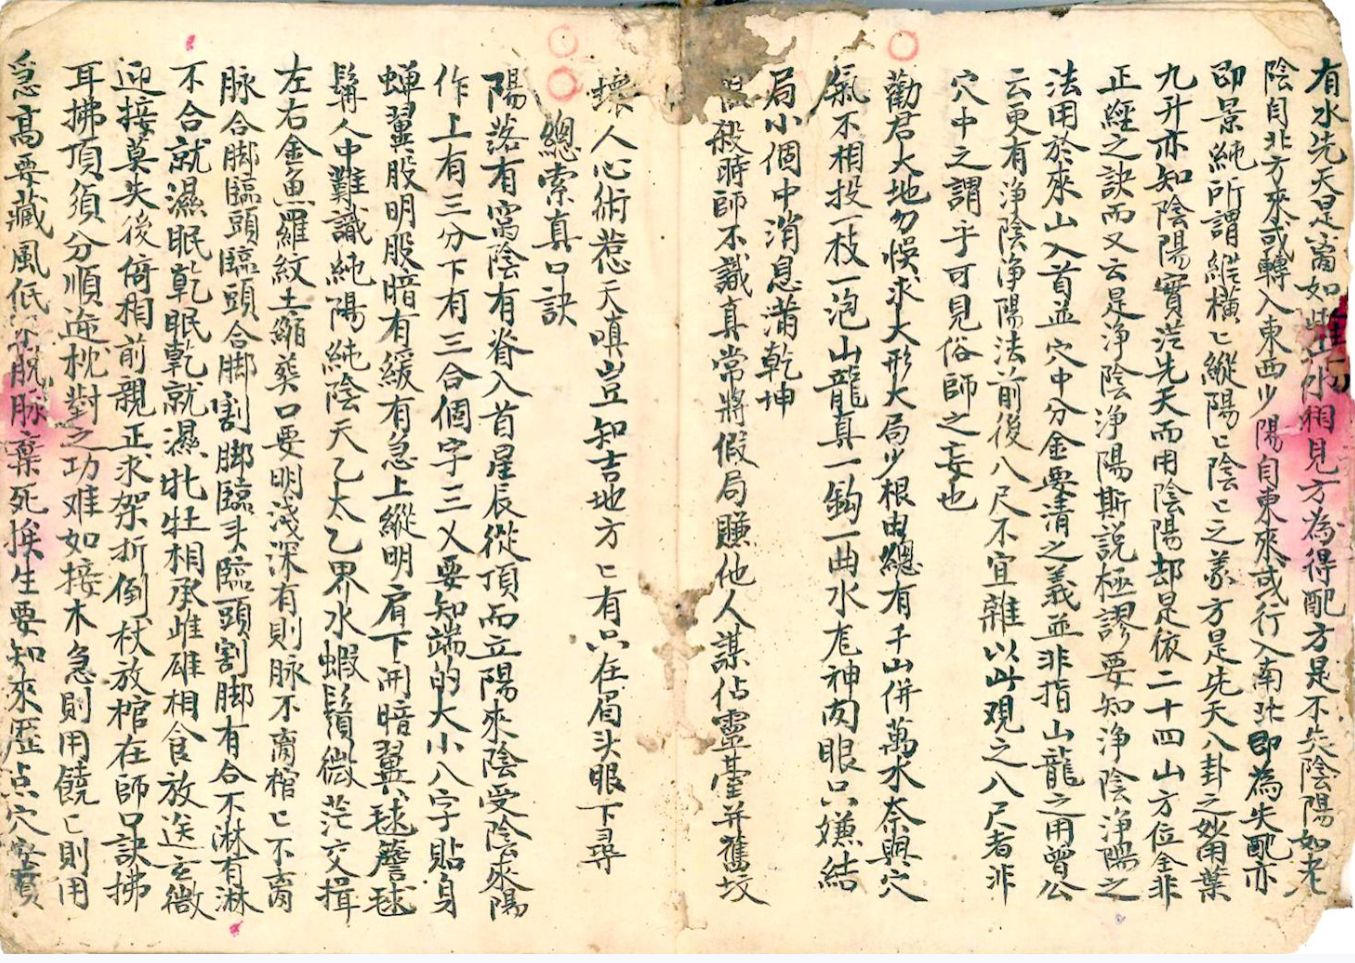 有水先天是窩如此山水相見方為得配方是不失陰陽如老
陰自北方來或轉入東西少陽自東來或行入南北即為失配亦
即景純所謂縱橫匕縱陽匕陰匕之義方是先天八卦之妙用葉
九升亦知陰陽實從先天而用陰陽却是依二十四山方位全非
正經之訣而又云是淨陰淨陽斯說極謬要知淨陰淨陽之
法用於來山入首並穴中分金要清之義並非指山龍之用曾公
云更有淨陰淨陽法前後八尺不宜雜以此观之八尺者非
穴中之謂乎可見俗師之妄也
勸君大地勿悞求大形大局少根由總有千山併萬水奈無穴
氣不相投一枝一泡山龍真一鈎一曲水尨神肉眼只嫌結
局小個中消息满乾坤
般時師不識真常將假局賺他人謀佔靈䑓并舊坟
壞人心術惹天嗔豈知吉地方匕有只在眉头眼下尋
總索真口訣
陽落有窩陰有脊入首星辰從頂而立陽來陰受陰來陽
作上有三分下有三合個字三乂要知端的大小八字貼身
蝉翼股明股暗有緩有急上縱明肩下開暗翼毬簷毬
髯人中難識純陽純陰天乙太乙界水蝦鬚微茫交揖
左右金魚羅紋土縮葬口要明浅深有則脉不离棺匕不离
脉合脚臨頭臨頭合脚割脚臨头臨頭割脚有合不淋有淋
不合就濕眠乾眠乾就濕牝牡相承雌雄相食放送玄微
迎接莫失後倚相前親正求架折倒杖放棺在師口訣拂
耳拂頂須分順逆枕對之功难如接木急則用饒匕則用
急高要藏風低不脫脉棄死挨生要知來歷点穴